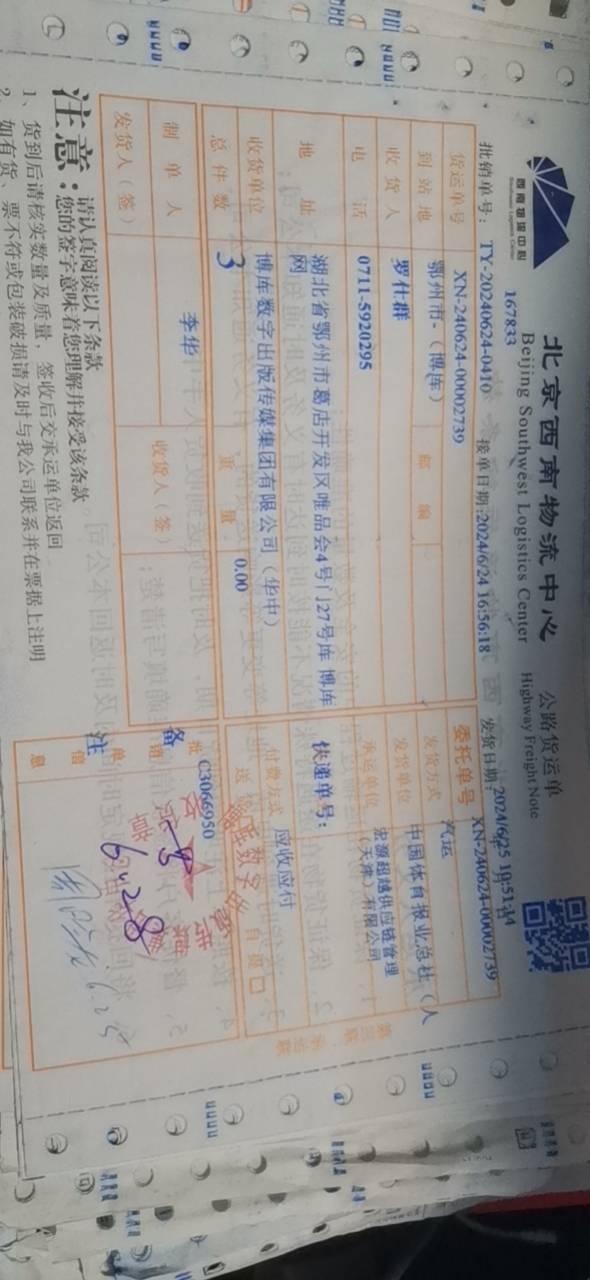 西南物流中心
Southwest Logistics Center
北京西南物流中心
公路货运单
Beijing Southwest Logistics Center
Highway Freight Note
167833
批销单号：TY-20240624-0410
接单日期：2024/6/24 16:56:18
发货日期：2024/6/25 10:51:14
货运单号 XN-240624-00002739 委托单号 XN-240624-00002739
到站地 鄂州市-（博库） 邮编 发货方式 汽运
收货人 罗仕群 发货单位 中国体育报业总社（人
电话 0711-5920295 承运单位 宏源超越供应链管理
（天津）有限公司
地址 湖北省鄂州市葛店开发区唯品会4号门27号库 博库
网
快递单号：
收货单位 博库数字出版传媒集团有限公司（华中） 付费方式 应收应付
总件数 3 重量 0.00 送货 自提口
制单人 李华 收货人（签）
发货人（签）
备注
批销单信息
C3066950
6.28
第三联 承运联
注意：
请认真阅读以下条款
您的签字意味着您理解并接受该条款
1、货到后请核实数量及质量，签收后交承运单位返回
2、如有货、票不符或包装破损请及时与我公司联系并在票据上注明